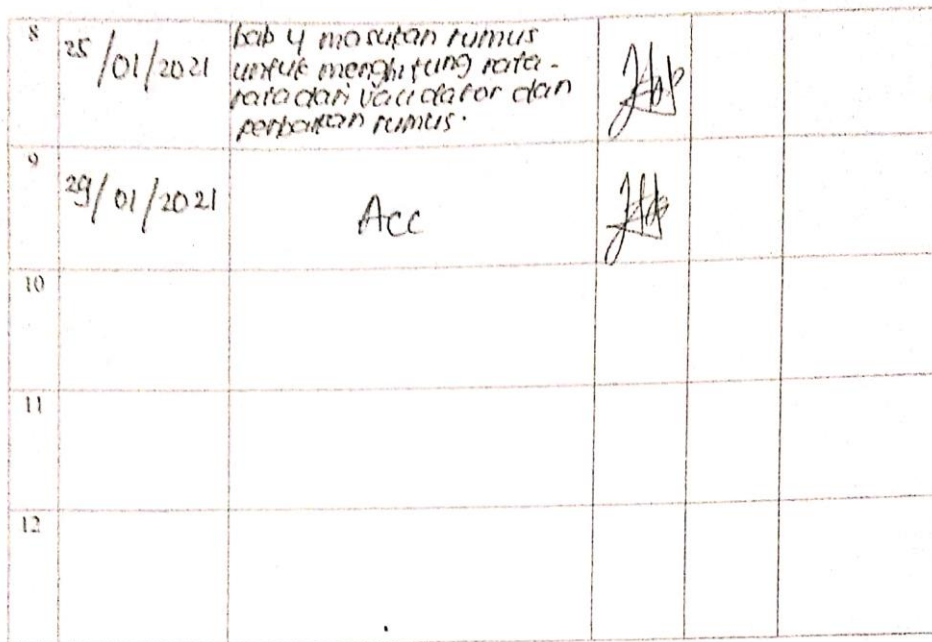 8
25/01/2021
bab 4 masukan rumus
untuk menghitung rata-
rata dari validator dan
perbaikan rumus.
9
29/01/2021
Acc
10
11
12